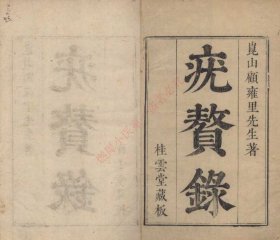 崑山顧雍里先生著
疣贅錄
桂雲堂藏板